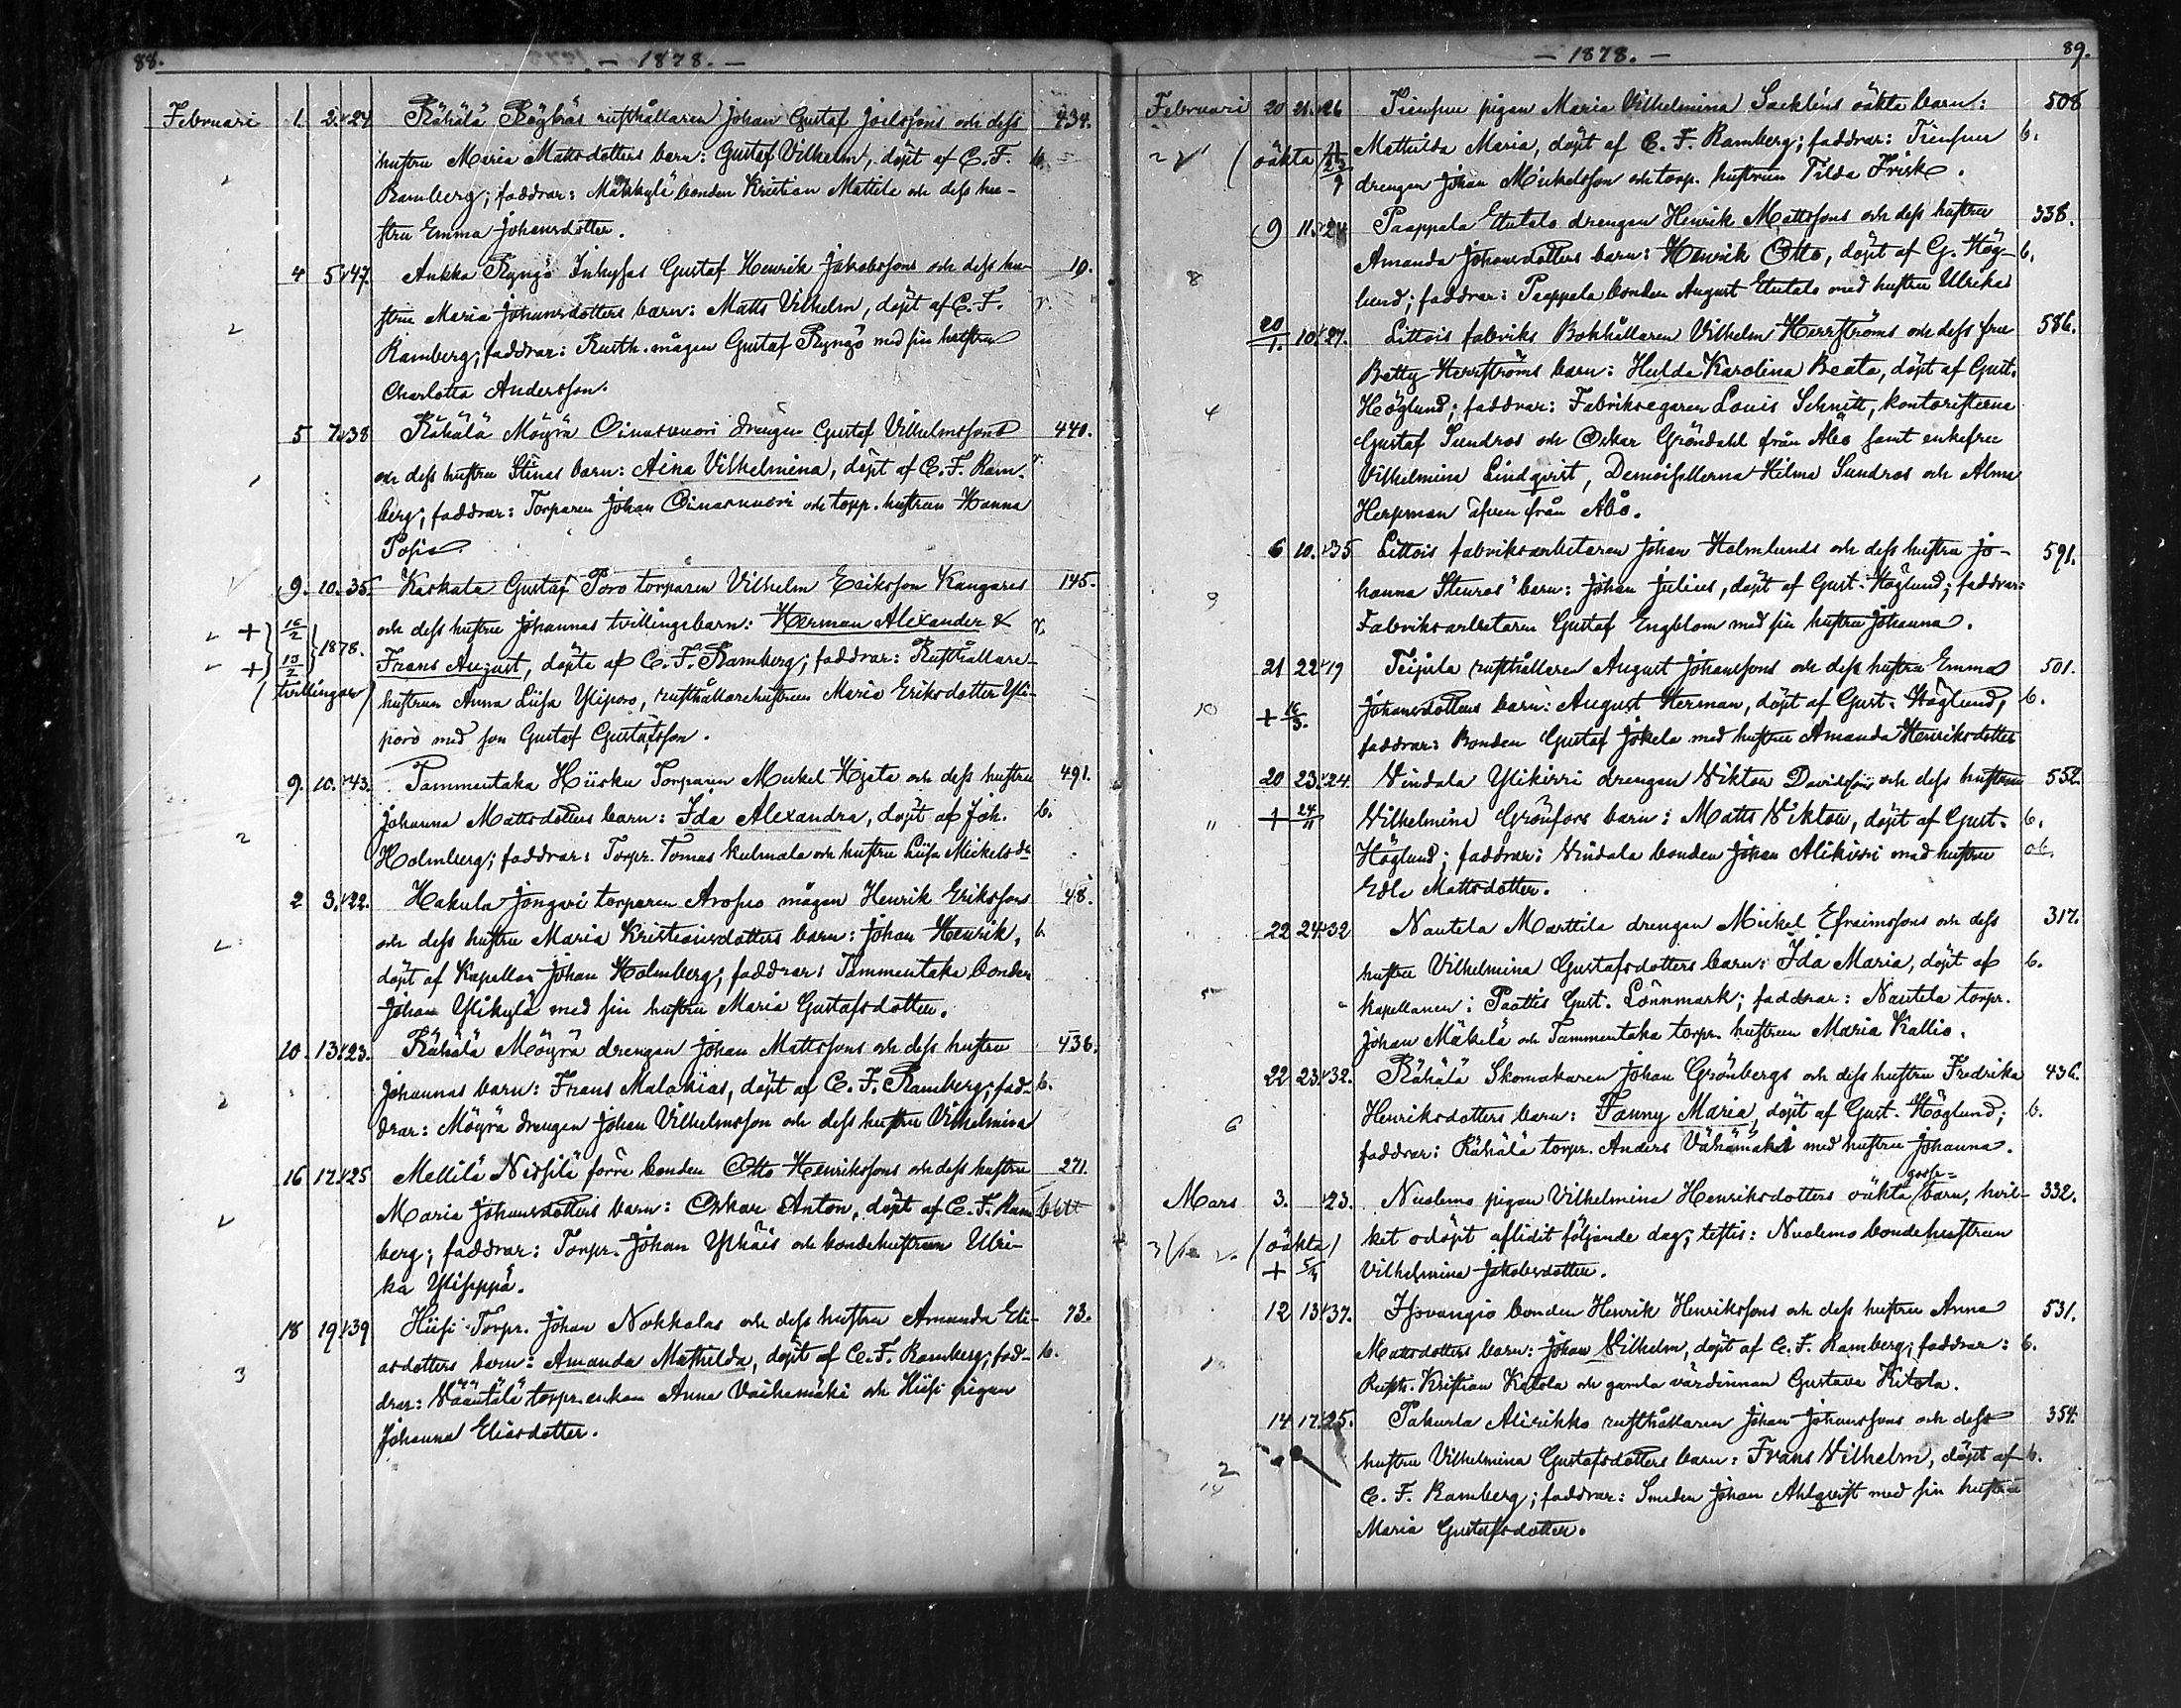 88.
— 1878. —
Februari 1. 2. 24 Rähälä Rögbräs rusthållaren Johan Gustaf Joelssons och dess 434.
hustru Maria Mattsdotters barn: Gustaf Vilhelm, döpt af C. F. b.
Ramberg; faddrar: bonden Kristian Mattila och dess hu-
stru Emma Johansdotter.
4 5 47. Ankka Ryngö Inhyses Gustaf Henrik Jakobssons och dess hu- 19.
stru Maria Johansdotters barn: Matts Vilhelm, döpt af C. F. v.
Ramberg; faddrar: Rusth. mågen Gustaf Ryngö med sin hustru
Charlotta Andersson.
5 7 38 Rähälä Möyrä Oinasvuori drängen Gustaf Vilhelmssons 440.
och dess hustru Stinas barn: Aina Vilhelmina, döpt af C. F. Ram- v.
berg; faddrar: Torparen Johan Oinasvuori och torp. hustrun Hanna
9. 10. 35. Kaskala Gustaf Poro torparen Vilhelm Eriksson Kangares 145.
+ 16/2 1878. och dess hustru Johannas tvillingebarn: Herman Alexander & v.
+ 19/2 Frans August, döpte af C. F. Ramberg; faddrar: Rusthållare-
(tvillingar) hustrun Anna Liisa Yliporo, rusthållarehustrun Maria Eriksdotter Yli-
poro med son Gustaf Gustafsson.
9. 10. 43. Tammentaka Hiiska Torparen Mickel Hjeta och dess hustru 491.
Johanna Mattsdotters barn: Ida Alexandra, döpt af Joh. b.
2 Holmberg; faddrar: Torpr. Tomas Kulmala och hustru Liisa Mickelsdr
2 3. 22. Hakula Jongari torparen Arosuo mågen Henrik Erikssons 48.
och dess hustru Maria Kristiansdotters barn: Johan Henrik, b.
döpt af Kapellan Johan Holmberg; faddrar: Tammentaka bonden
Johan Ylikylä med sin hustru Maria Gustafsdotter.
10. 13. 23. Rähälä Möyrä drengen Johan Mattssons och dess hustru 436.
Johannas barn: Frans Malakias, döpt af C. F. Ramberg; fad- b.
drar: Möyrä drengen Johan Vilhelmsson och dess hustru Vilhelmina
16 17. 25 Mellilä Nissilä förre bonden Otto Henrikssons och dess hustru 271.
Maria Johansdotters barn: Oskar Anton, döpt af C. F. Ram-
berg; faddrar: Torpr. Johan Ylhäis och bondehustrun Ulri-
ka Yliseppä.
18 19 39 Hiisi Torpr. Johan Nokkalas och dess hustru Amanda Eli- 73.
asdotters barn: Amanda Mathilda, döpt af C. F. Ramberg; fad- b.
3 drar: Vääntälä torpr. enkan Anna Vaihemäki och Hiisi pigan
Johanna Eliasdotter.
— 1878. —
89.
Februari 20 21. 26 pigan Maria Vilhelmina Sacklins oäkta barn: 508
(oäkta Mathilda Maria, döpt af C. F. Ramberg; faddrar: b.
drengen Johan Mickelsson och torp. hustrun Tilda Frisk.
9 11. 24 Paappala Etutalo drengen Henrik Mattssons och dess hustru 338.
8 Amanda Johansdotters barn: Henrik Otto, döpt af G. Hög- b.
lund; faddrar: Paappala bonden August Etutalo med hustru Ulrika
20/1. 10 27. Littois fabriks Bokhållaren Vilhelm Herrströms och dess fru 586.
Betty Herrströms barn: Hulda Karolina Beata, döpt af Gust.
4 Höglund; faddrar: Fabriksegaren Louis Schnitt, kontoristerna
Gustaf Sundros och Oskar Gröndahl från Åbo samt enkefru
Vilhelmina Lindqvist, Demoisellerna Hilma Sundros och Alma
Herpman äfven från Åbo.
6 10. 35 Littois fabriksarbetaren Johan Holmlunds och dess hustru Jo- 591.
9 hanna Stenros' barn: Johan Julius, döpt af Gust. Höglund; faddrar:
Fabriksarbetaren Gustaf Engblom med sin hustru Johanna.
21 22 19 Teijula rusthållaren August Johanssons och dess hustru Emma 501.
10 + 16/3. Johansdotters barn: August Herman, döpt af Gust. Höglund, b.
faddrar: Bonden Gustaf Jokela med hustru Amanda Henriksdotter
20 23. 24. Vindala Ylikirri drengen Viktor Davidssons och dess hustru 552.
" + 24/11 Vilhelmina Grönfors barn: Matts Viktor, döpt af Gust. b.
Höglund; faddrar: Vindala bonden Johan Alikirri med hustru ob.
Edla Mattsdotter.
22 24. 32 Nautela Marttila drengen Mickel Efraimssons och dess 317.
hustru Vilhelmina Gustafsdotters barn: Ida Maria, döpt af b.
5 kapellanen i Paattis Gust. Lönnmark; faddrar: Nautela torpr.
Johan Mäkelä och Tammentaka torpr. hustrun Maria Kallio.
22 23. 32. Rähälä Skomakaren Johan Grönbergs och dess hustru Fredrika 436.
6 Henriksdotters barn: Fanny Maria, döpt af Gust. Höglund; b.
faddrar: Rähälä torpr. Anders Vähämäki med hustru Johanna.
Mars 3. 23. Nuolemo pigan Vilhelmina Henriksdotters oäkta gosse-barn, hvil- 332.
(oäkta) ket odöpt aflidit följande dag; testis: Nuolemo bondehustrun
+ 5/3 Vilhelmina Jakobsdotter.
12 13. 37. Isovangio bonden Henrik Henrikssons och dess hustru Anna 531.
Mattsdotters barn: Johan Vilhelm, döpt af C. F. Ramberg; faddrar: b.
Rusth. Kristian Ketola och gamla värdinnan Gustava Kitola.
14 17. 25. Pakurla Alirikko rusthållaren Johan Johanssons och dess 354.
2 hustru Vilhelmina Gustafsdotters barn: Frans Vilhelm, döpt af b.
14 C. F. Ramberg; faddrar: Smeden Johan Ahlqvist med sin hustru
Maria Gustafsdotter.